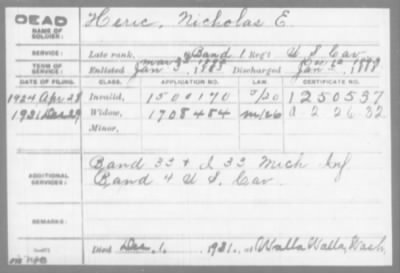 DEAD
NAME OF SOLDIER: Heric, Nicholas E.
SERVICE: Late rank, Band 1 Reg't U S Cav
TERM OF SERVICE: Enlisted Jan 3, 1885 Discharged Jan
DATE OF FILING. CLASS. APPLICATION NO. LAW. CERTIFICATE NO.
1924 Apr 28 Invalid, 1501170 5/20 1250537
1931 Dec 29 Widow, 1708484 A 2 26 32
Minor,
ADDITIONAL SERVICES: Band 33 & I 33 Mich Inf
Band 4 U S Cav.
REMARKS:
Died Dec. 1, 1931, at Walla Walla, Wash